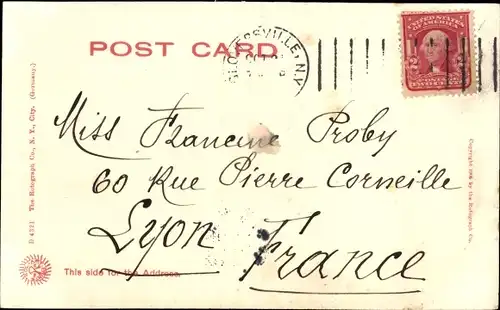 POST CARD
GLOVERSVILLE, N.Y.
UNITED STATES OF AMERICA
2 2
Miss Francine Proby
60 Rue Pierre Corneille
Lyon France
This side for the Address.
D 4521 The Rotograph Co., N. Y. City. (Germany.)
Copyright 1905 by the Rotograph Co.